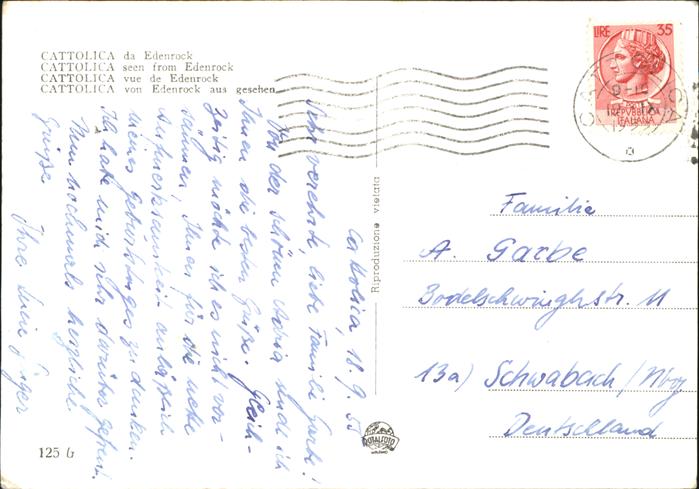 CATTOLICA da Edenrock
CATTOLICA seen from Edenrock
CATTOLICA vue de Edenrock
CATTOLICA von Edenrock aus gesehen
Cattolica, 18.9.55
Sehr verehrte, liebe Familie Garbe!
Von der schönen Adria send ich
Ihnen die besten Grüße. Gleich-
zeitig möchte ich es nicht ver-
säumen, Ihnen für die nette
Aufmerksamkeit anläßlich
meines Geburtstages zu danken.
Ich habe mich sehr darüber gefreut.
Nun nochmals herzliche
Grüße
Ihre
125 G
Riproduzione vietata
LIRE 35
REPVBBLICA
ITALIANA
CATTOLICA
Familie
A. Garbe
Bodelschwinghstr. 11
13a) Schwabach/Nbg
Deutschland